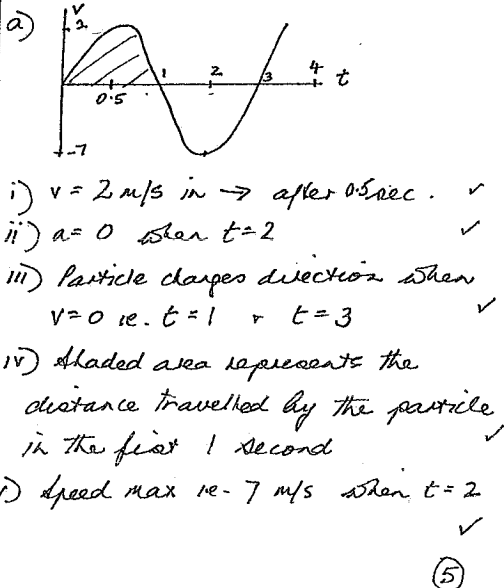 a)
v
2
1 2 3 4 t
0.5
-7
i) v = 2 m/s in → after 0.5 sec. ✓
ii) a = 0 when t = 2 ✓
iii) Particle changes direction when
v = 0 ie. t = 1 & t = 3 ✓
iv) Shaded area represents the
distance travelled by the particle
in the first 1 second ✓
) Speed max ie - 7 m/s when t = 2
✓
5